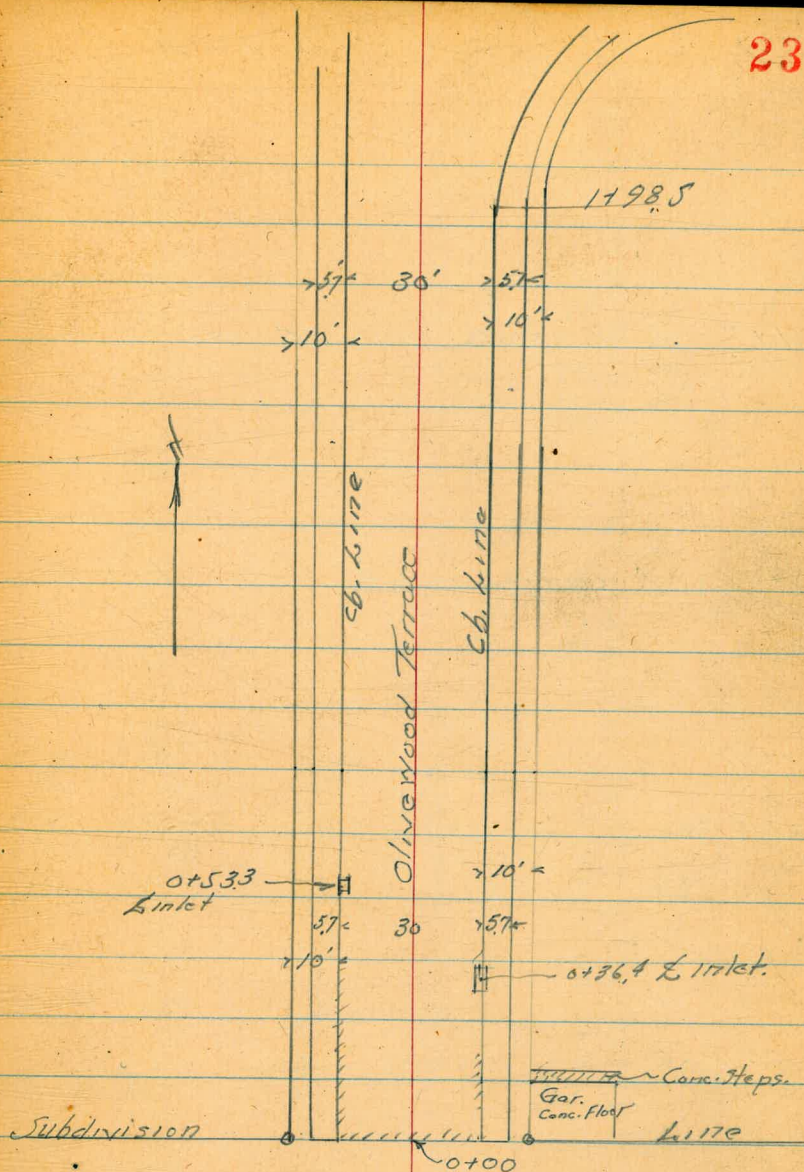 23
1+98.5
5.7' 30' 5.7
10'
10'
Cb. Line
Olivewood Terrace
Cb. Line
10'
0+53.3
℄ inlet
5.7 30 5.7
10'
0+36.4 ℄ Inlet.
Conc. Steps.
Gar.
Conc. Floor
Subdivision Line
0+00